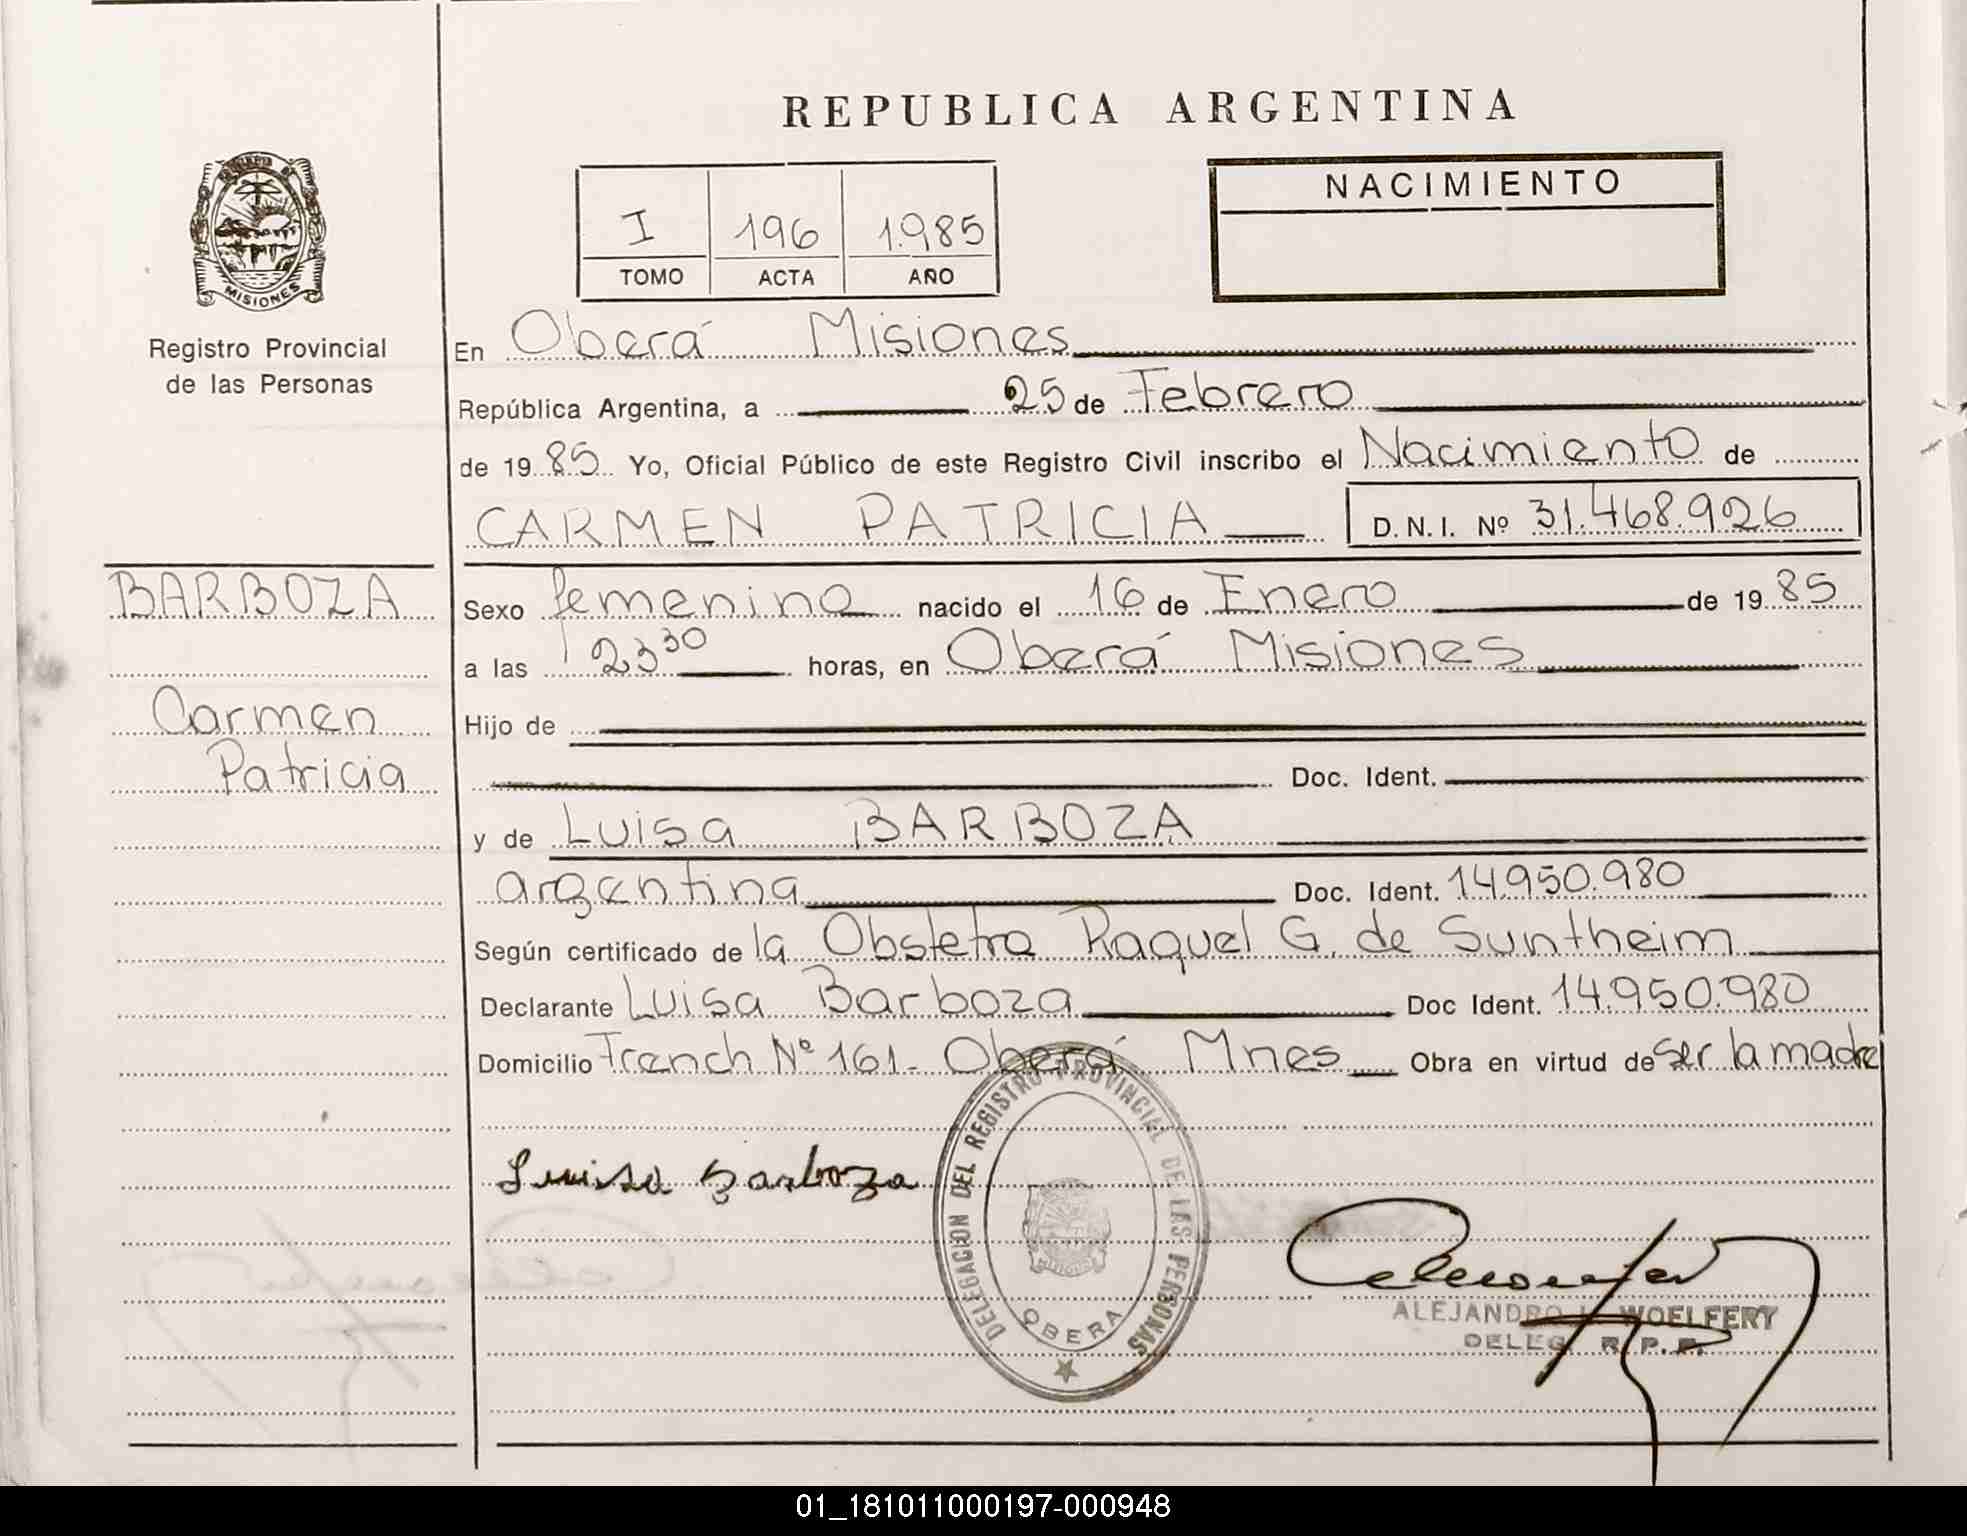 REPUBLICA ARGENTINA
MISIONES
Registro Provincial
de las Personas
I 196 1.985
TOMO ACTA AÑO
NACIMIENTO
En Oberá Misiones
República Argentina, a 25 de Febrero
de 19 85 Yo, Oficial Público de este Registro Civil inscribo el Nacimiento de
CARMEN PATRICIA D.N.I. Nº 31.468.926
BARBOZA
Carmen
Patricia
Sexo femenino nacido el 16 de Enero de 19 85
a las 23 30 horas, en Oberá Misiones
Hijo de
Doc. Ident.
y de Luisa BARBOZA
argentina Doc. Ident. 14.950.980
Según certificado de la Obstetra Raquel G. de Suntheim
Declarante Luisa Barboza Doc Ident. 14.950.980
Domicilio French Nº 161- Oberá Mnes Obra en virtud de ser la madre
Luisa Barboza
DELEGACION DEL REGISTRO PROVINCIAL DE LAS PERSONAS
OBERA
ALEJANDRO WOELFERY
DELEG. R.P.P.
01_181011000197-000948